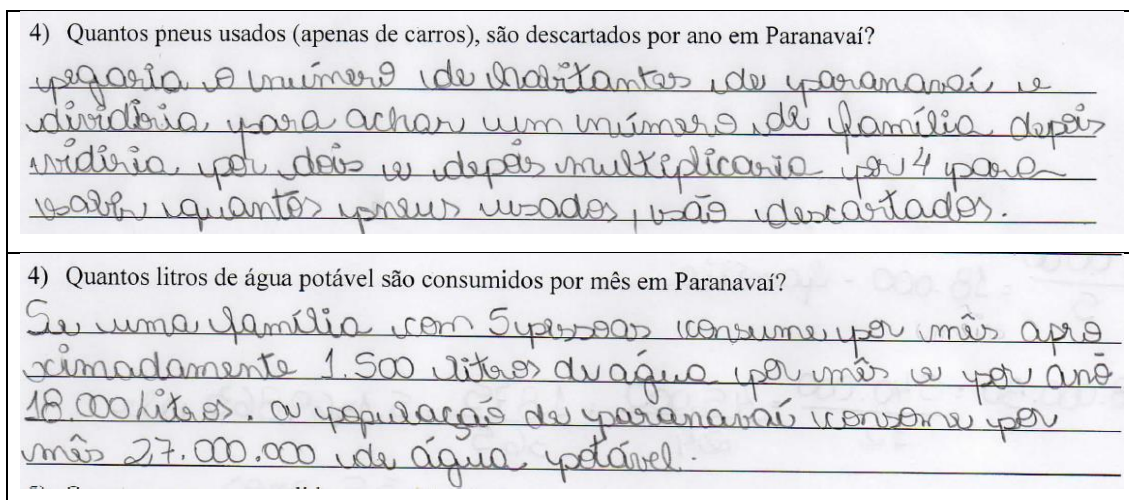 4) Quantos pneus usados (apenas de carros), são descartados por ano em Paranavaí?
pegaria o número de habitantes de paranavaí e
dividiria, para achar um número de família depois
vidiria por dois e depois multiplicaria por 4 para
saber quantos pneus usados, são descartados.
4) Quantos litros de água potável são consumidos por mês em Paranavaí?
Se uma família com 5 pessoas consume por mês apro
ximadamente 1.500 litros de água por mês e por ano
18.000 litros. a população de paranavaí consome por
mês 27.000.000 de água potável.